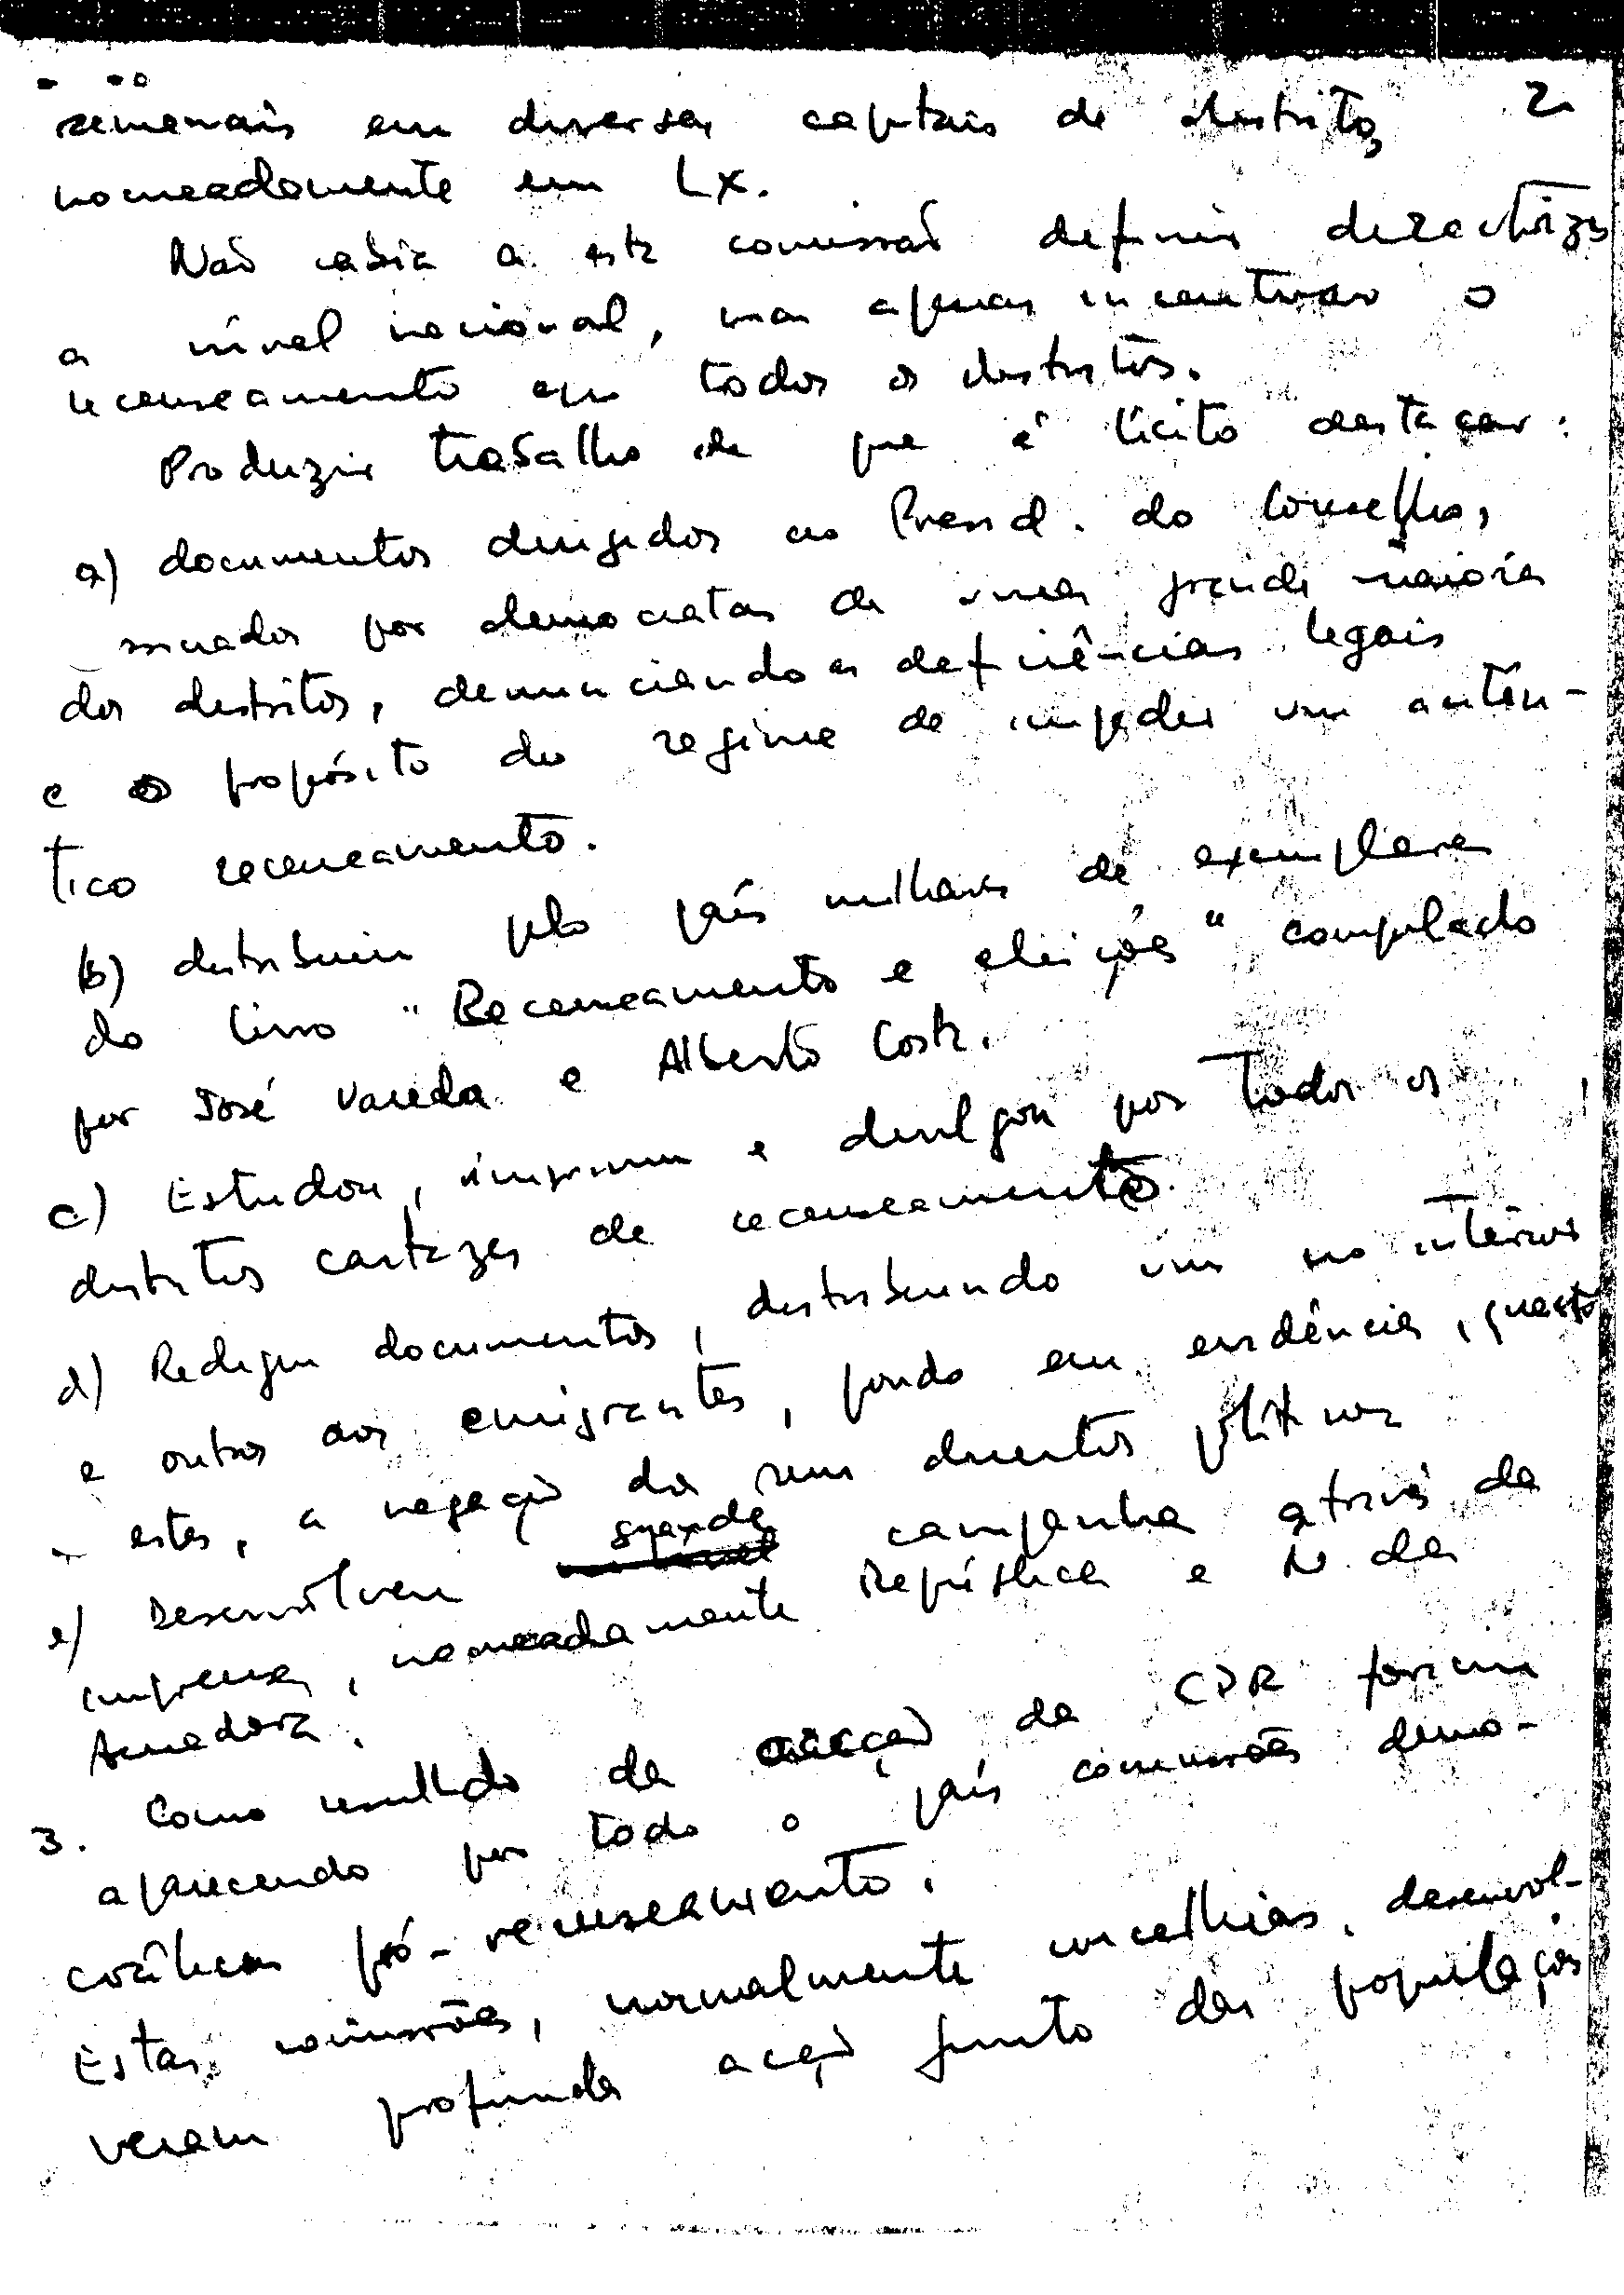 semanais em diversas capitais de distrito, 2
nomeadamente em Lx.
Não cabia a esta comissão definir directrizes
a nível nacional, mas apenas incentivar o
recenseamento em todos os distritos.
Produziu trabalho de que é lícito destacar:
a) documentos dirigidos ao Presid. do Conselho,
assinados por democratas de uma grande maioria
dos distritos, denunciando as deficiências legais
e o propósito do regime de impedir um autên-
tico recenseamento.
b) distribuiu pelo país milhares de exemplares
do livro "Recenseamento e eleições" compilado
por José Vareda e Alberto Costa.
c) Estudou, imprimiu e divulgou por todos os
distritos cartazes de recenseamento.
d) Redigiu documentos, distribuindo uns no interior
e outros aos emigrantes, pondo em evidência, quanto
a estes, a negação dos seus direitos políticos
e) Desenvolveu grande campanha através da
imprensa, nomeadamente República e N. da
Amadora.
3. Como resultado da acção da CDR foram
aparecendo por todo o país comissões demo-
cráticas pró-recenseamento.
Estas comissões, normalmente concelhias, desenvol-
veram profunda acção junto das populações